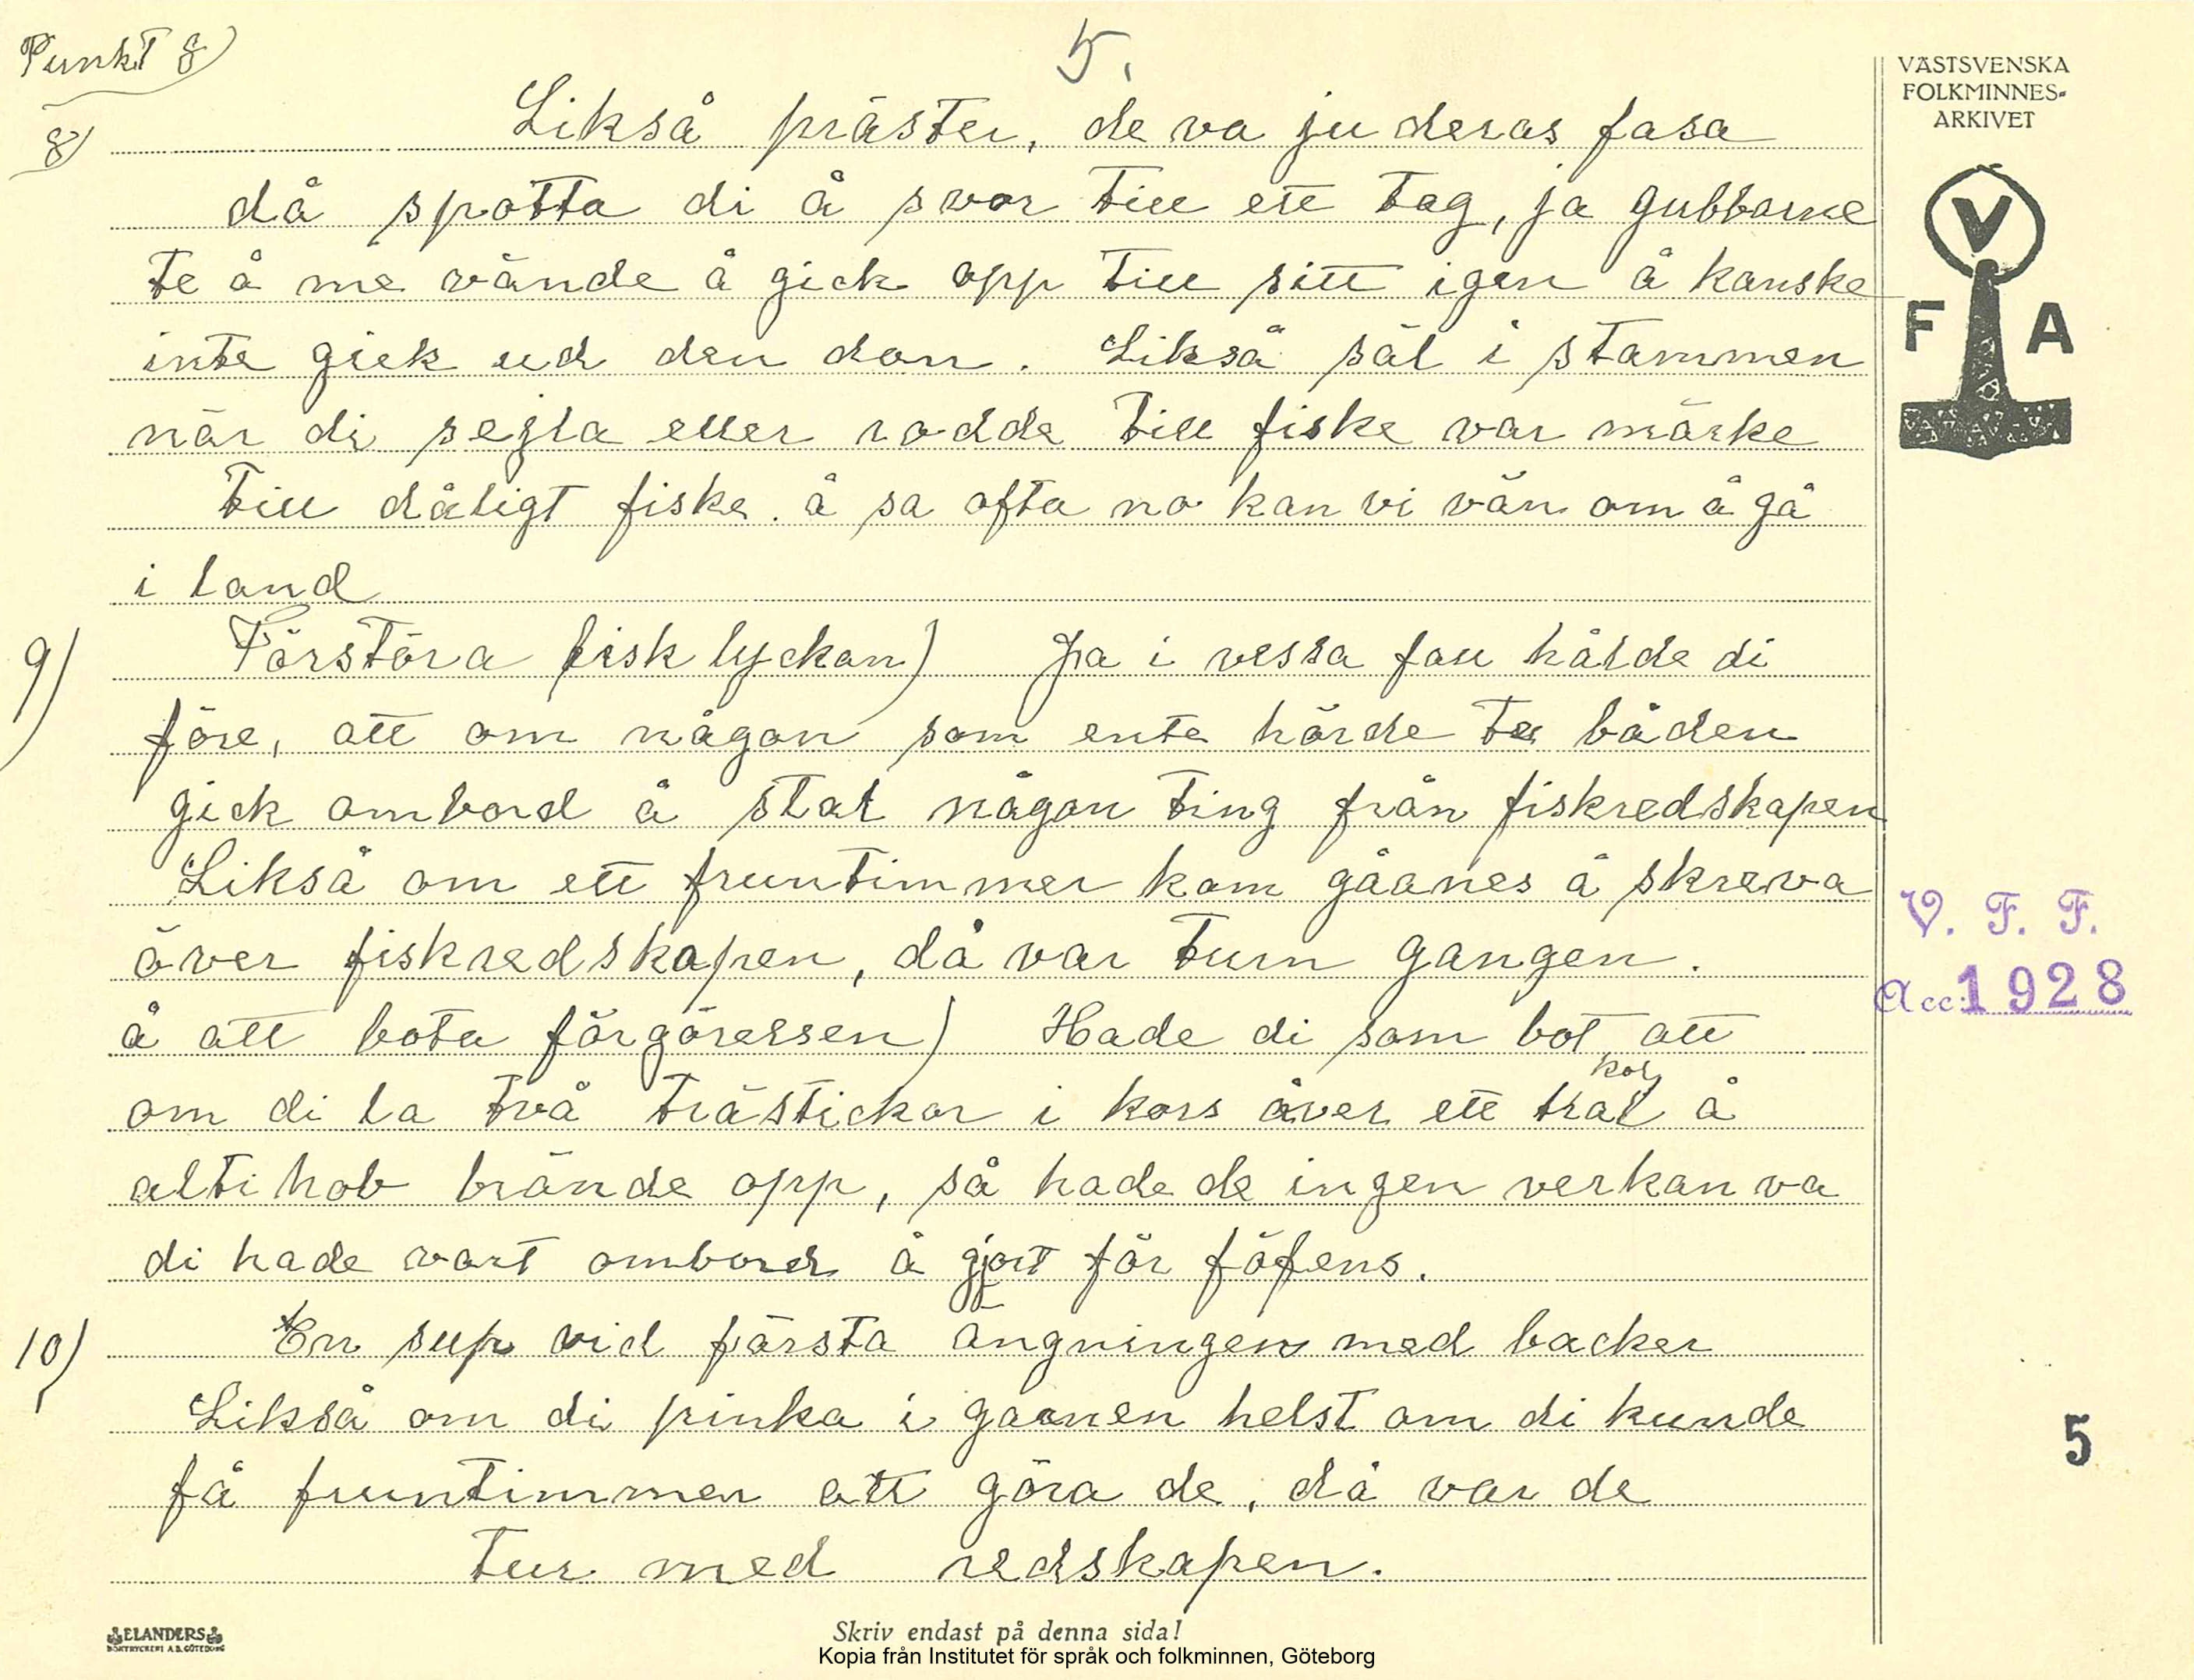 Punkt 8)
5.
VÄSTSVENSKA
FOLKMINNES-
ARKIVET
8) Likså präster, de va ju deras fasa
då spotta di å svor till ett tag, ja gubbarne
te å me vände å gick opp till sitt igen å kanske
inte gick ud den dan. Likså säl i stammen
när di segla eller rodde till fiske var märke
till dåligt fiske. å sa ofta no kan vi vän om å gå
i land
V
F A
9) Förstöra fisklyckan) Ja i vessa fall hålde di
före, att om någon som ente hörde te båden
gick ombord å stal någon ting från fiskredskapen
Likså om ett fruntimmer kom gåanes å skreva
över fiskredskapen, då var turn gangen.
å att bota förgörelsen) Hade di som bot att
kol
om di la två trästickor i kors över ett tral å
alti hob brände opp, så hade de ingen verkan va
di hade vart ombord å gjort för föfens.
V. F. F.
Acc: 1928
10) En sup vid första ängningen med backer
Likså om di pinka i gaanen helst om di kunde
få fruntimmer att göra de, då var de
tur med redskapen.
5
ELANDERS
BOKTRYCKERI A.B. GÖTEBORG
Skriv endast på denna sida!
Kopia från Institutet för språk och folkminnen, Göteborg